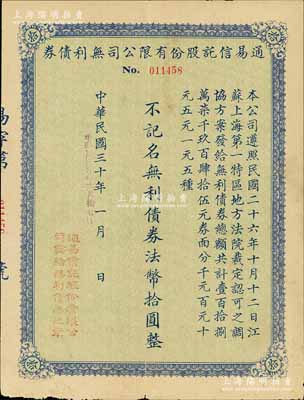 上海陽明拍賣
券債利無司公限有份股託信易通
No. 011458
本公司遵照民國二十六年十月十二日江
蘇上海第一特區地方法院裁定認可之調
協方案發給無利債券總額共計壹百拾捌
萬柒千玖百肆拾伍元券面分千元百元十
元五元一元五種
不記名無利債券法幣拾圓整
中華民國三十年一月　日
通易信託股份有限公
上海陽明拍賣